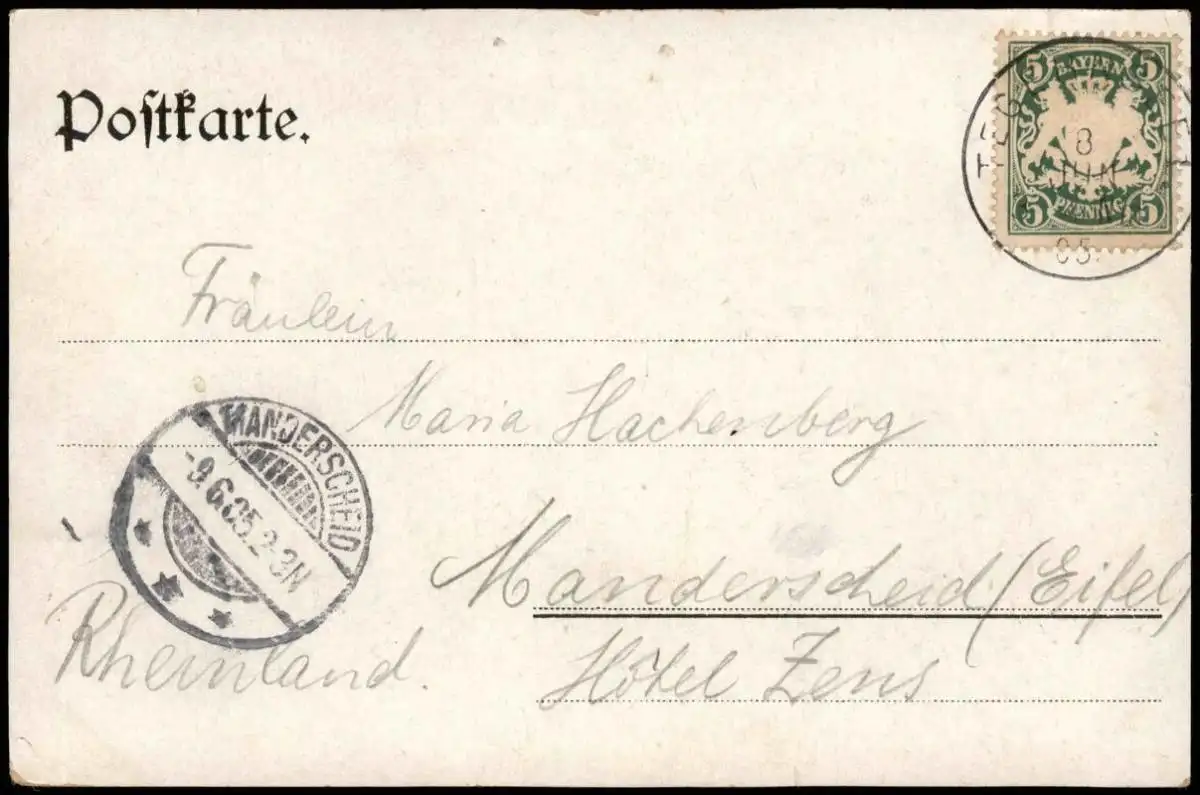 Postkarte.
5 BAYERN 5
5 PFENNIG 5
8
JUN
05.
Fräulein
Maria Hachenberg
MANDERSCHEID
-9.6.05.2-3N
Manderscheid (Eifel)
Rheinland.
Hôtel Zens